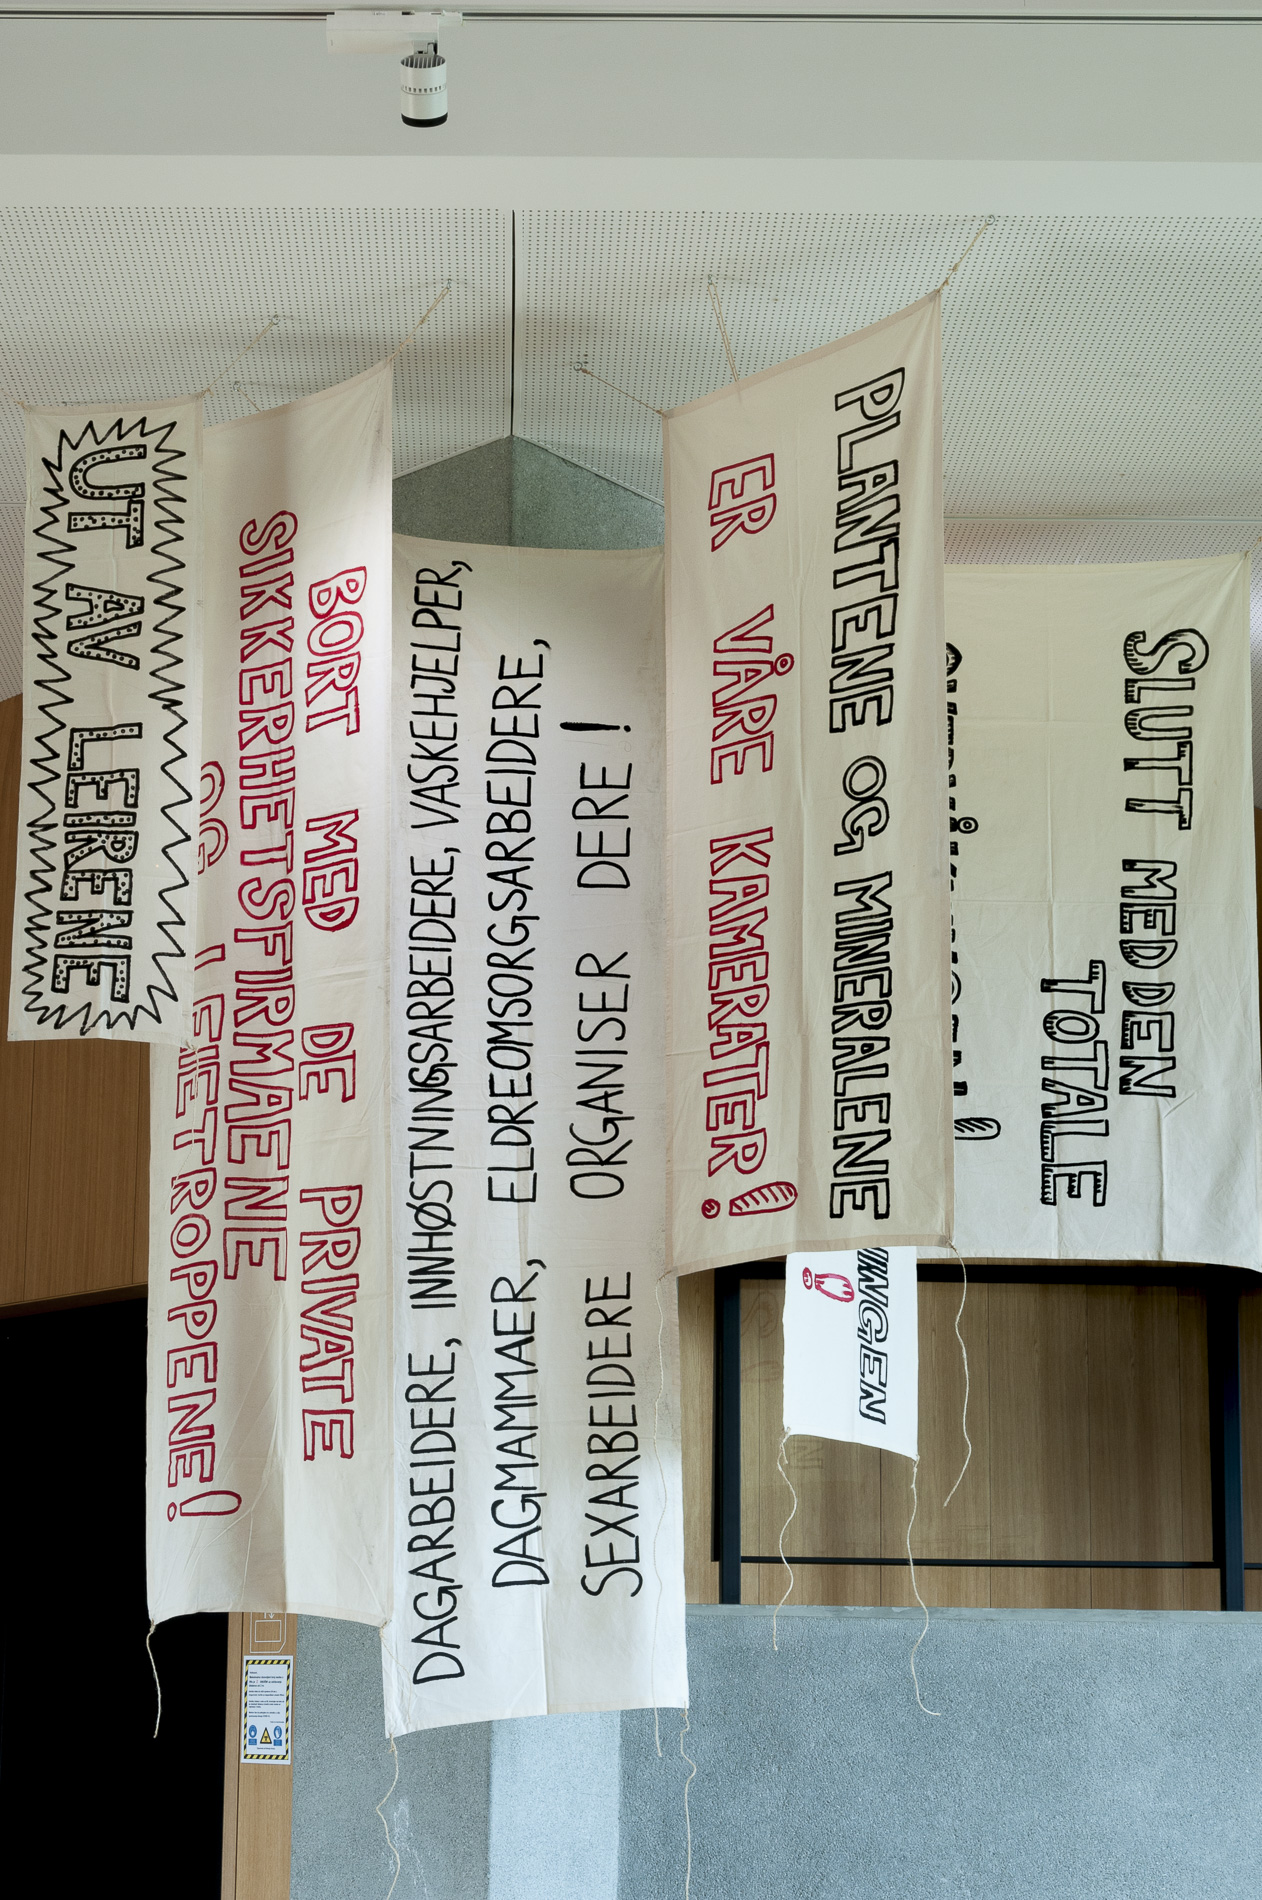 UT AV LEIRENE
BORT MED DE PRIVATE
SIKKERHETSFIRMAENE
OG LEIETROPPENE!
DAGARBEIDERE, INNHØSTNINGSARBEIDERE, VASKEHJELPER,
DAGMAMMAER, ELDREOMSORGSARBEIDERE,
SEXARBEIDERE ORGANISER DERE!
PLANTENE OG MINERALENE
ER VÅRE KAMERATER!
SLUTT MED DEN
TOTALE